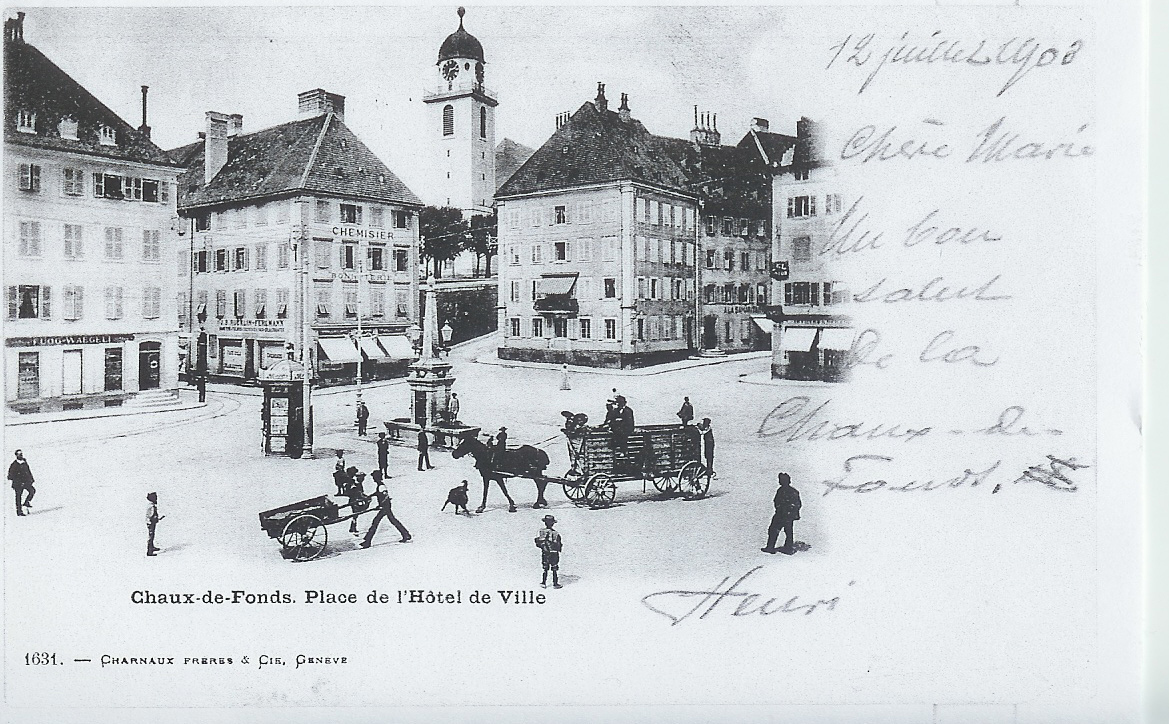 12 juillet 1903
Chère Marie
Un bon
salut
de la
Chaux-des
Fonds.
Henri
CHEMISIER
BONNETERIE
Chaux-de-Fonds. Place de l'Hôtel de Ville
1631. — CHARNAUX FRERES & CIE, GENEVE